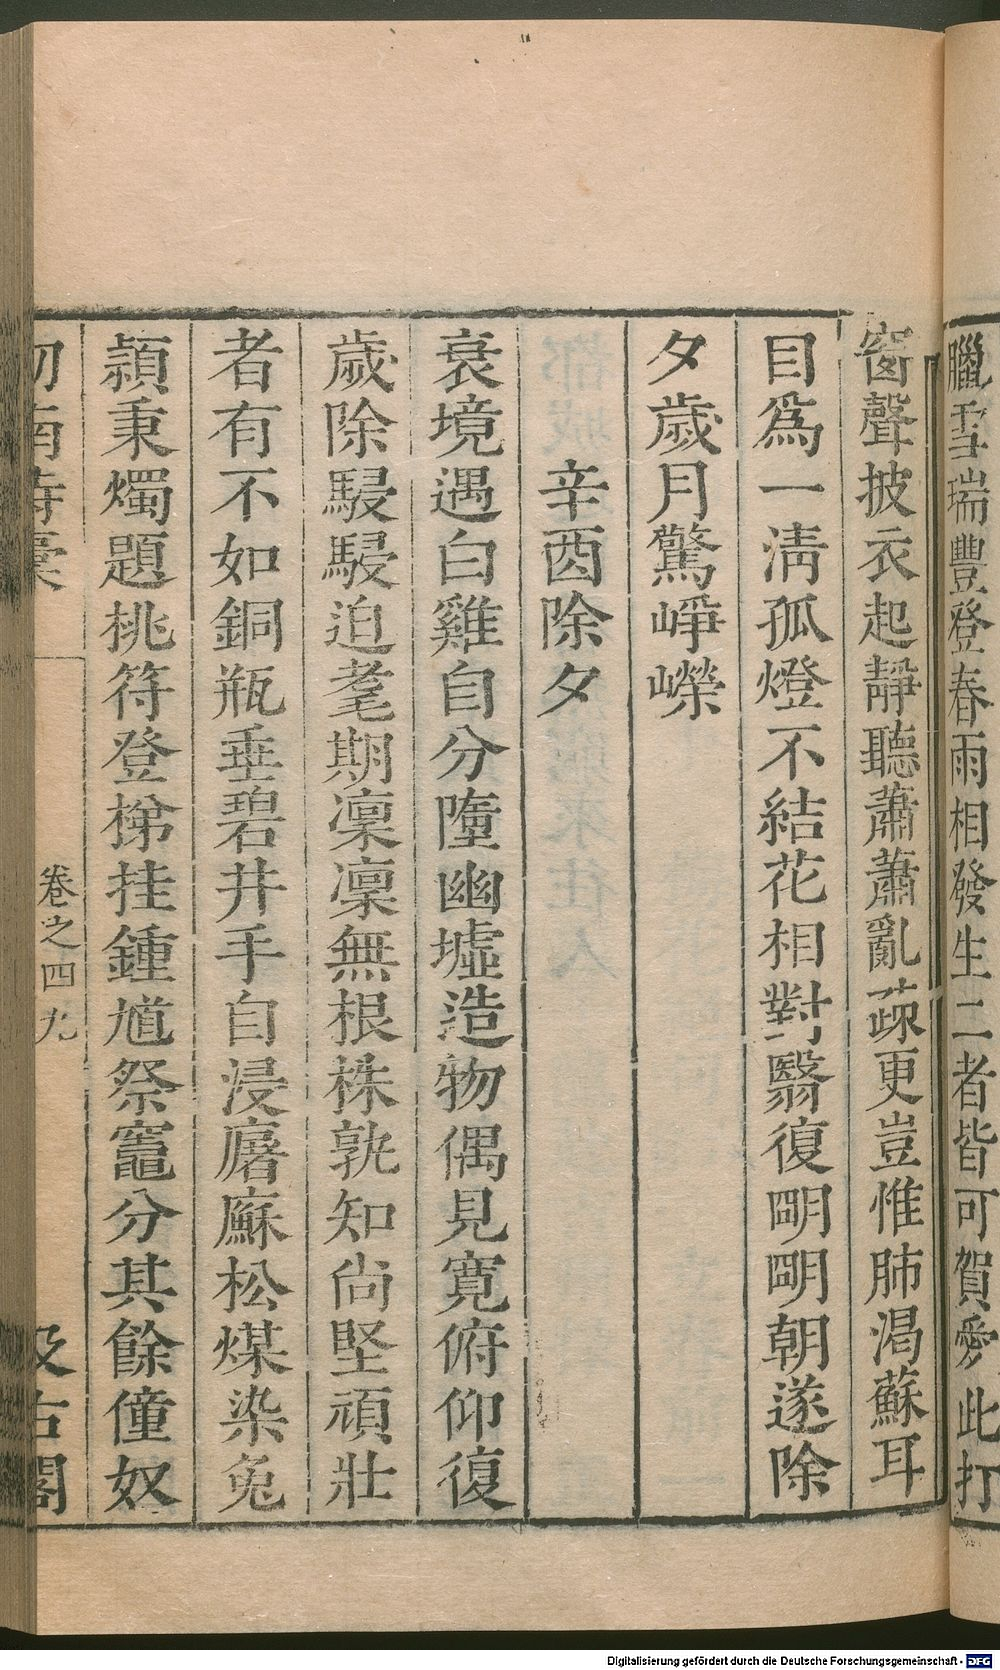 臘雪瑞豐登春雨相發生二者皆可賀愛此打
窗聲披衣起靜聽蕭蕭亂疎更豈惟肺渴蘇耳
目爲一淸孤燈不結花相對翳復明明朝遂除
夕歲月驚崢嶸
辛酉除夕
衰境遇白雞自分墮幽墟造物偶見寬俯仰復
歲除駸駸迫耄期凜凜無根株孰知尙堅頑壯
者有不如銅瓶垂碧井手自浸屠蘇松煤染兔
穎秉燭題桃符登梯挂鍾馗祭竈分其餘僮奴
劎南詩稾
卷之四九
汲古閣
Digitalisierung gefördert durch die Deutsche Forschungsgemeinschaft - DFG